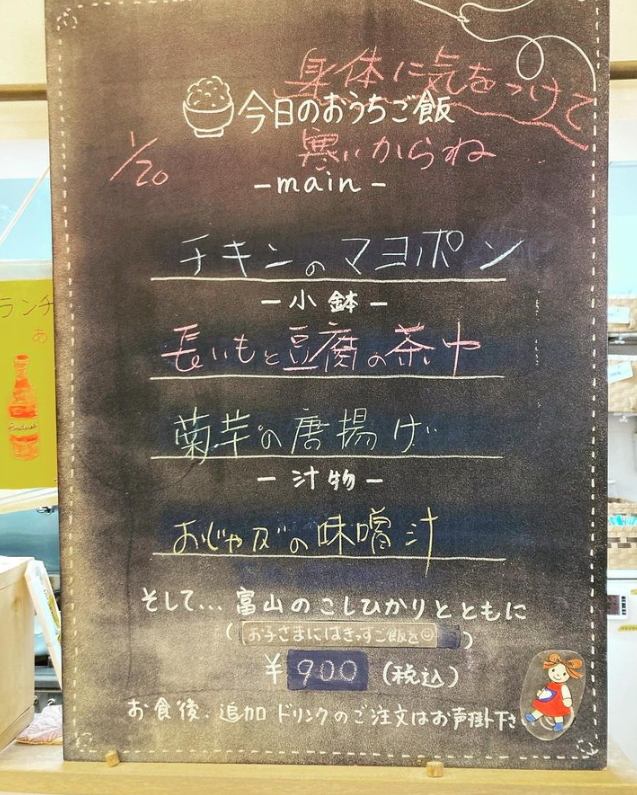 身体に気をつけて
今日のおうちご飯
寒いからね
1/20
-main-
チキンのマヨポン
-小鉢-
長いもと豆腐の茶巾
菊芋の唐揚げ
-汁物-
の味噌汁
そして… 富山のこしひかりとともに
(お子さまにはきっずご飯を☺)
¥900 (税込)
お食後、追加ドリンクのご注文はお声掛下さい
ランチ
あ